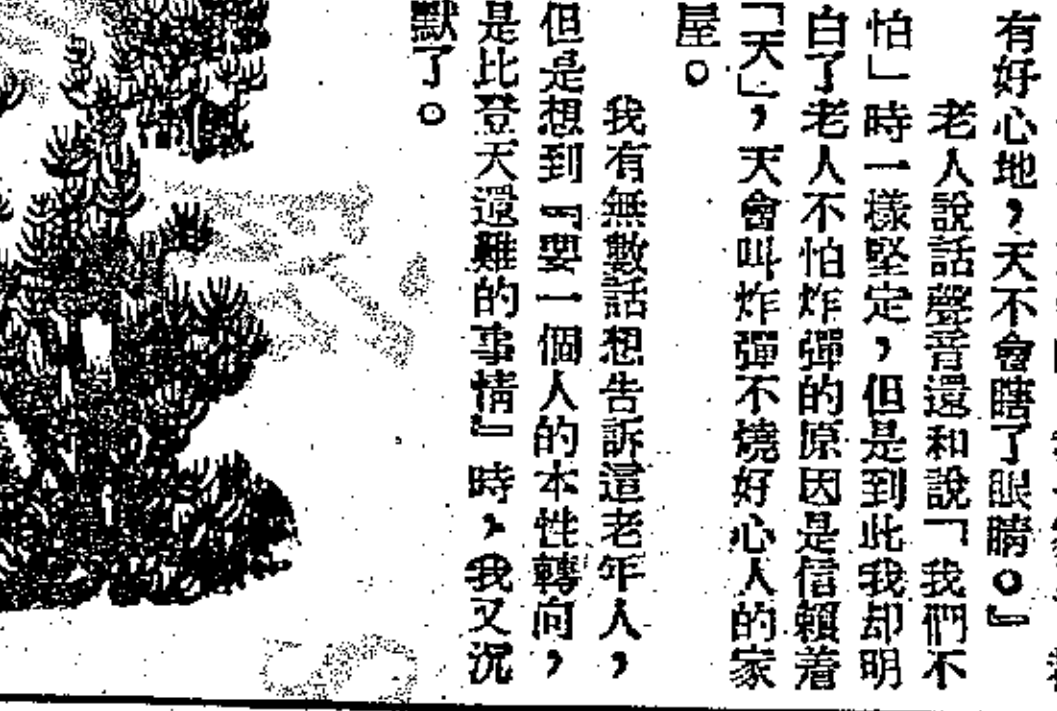 有好心地，天不會瞎了眼睛。』
老人說話聲音還和說「我們不
怕」時一樣堅定，但是到此我却明
白了老人不怕炸彈的原因是信賴着
「天」，天會叫炸彈不燒好心人的家
屋。
我有無數話想告訴這老年人，
但是想到『要一個人的本性轉向，
是比登天還難的事情』時，我又沉
默了。